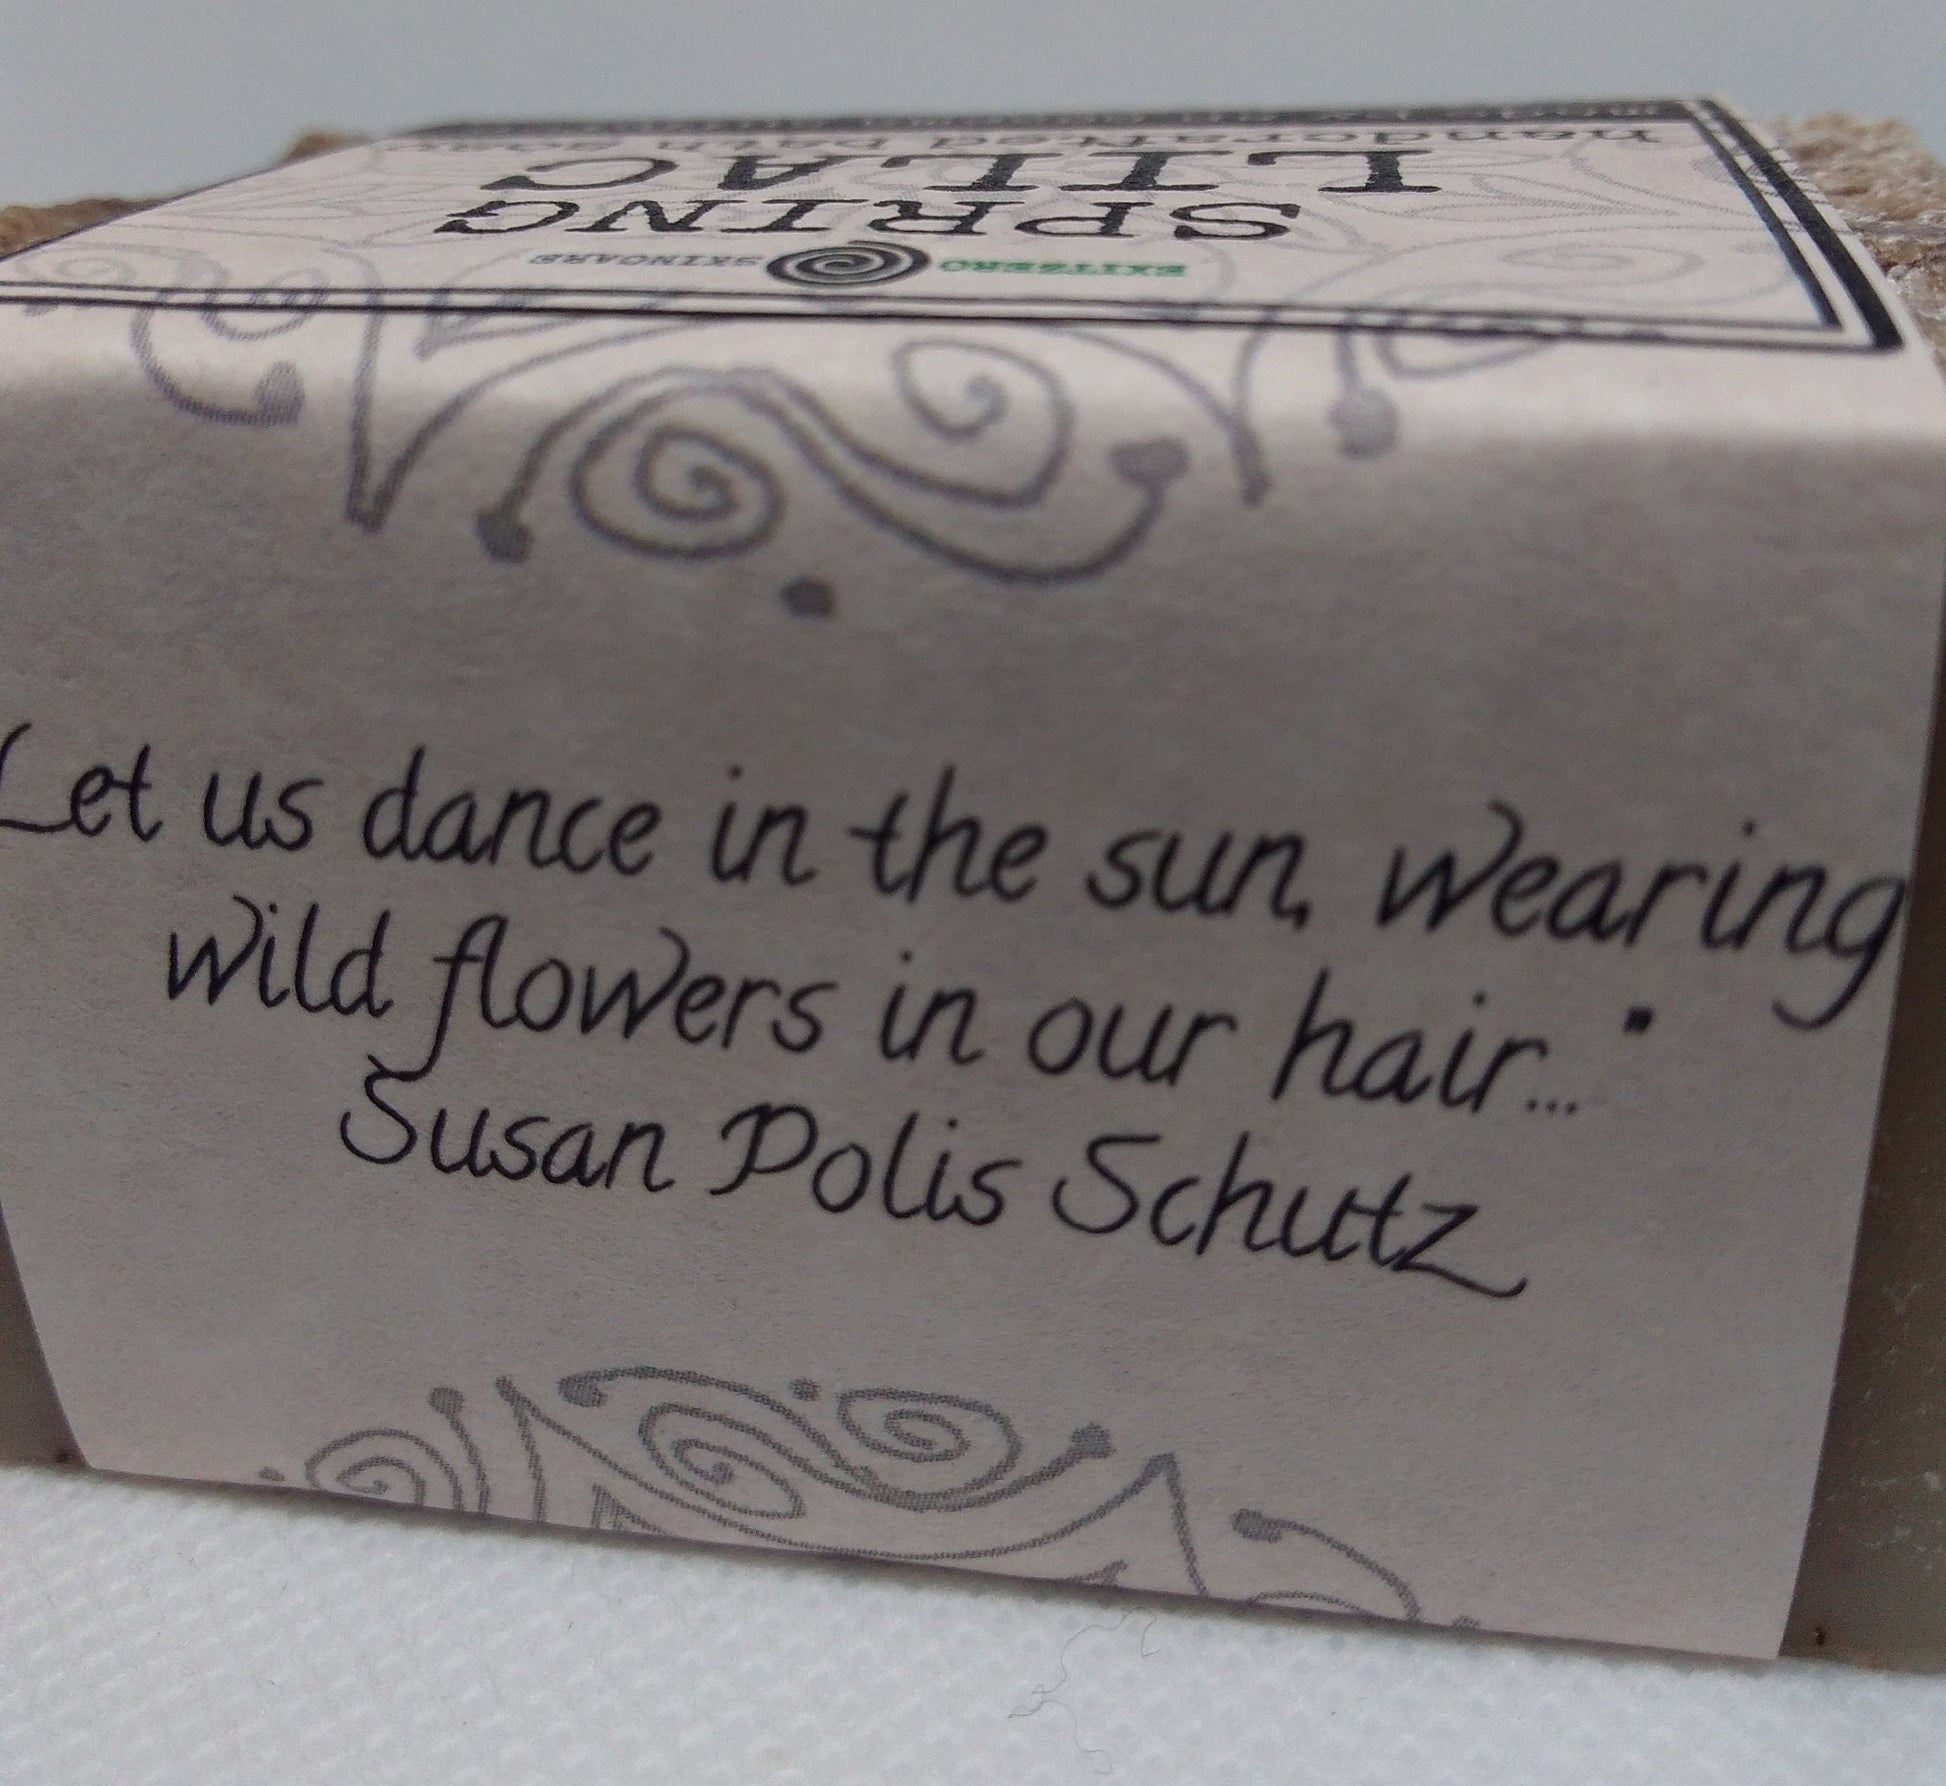 EXITZERO SKINCARE
SPRING
LILAC
handcrafted bath soap
Let us dance in the sun, wearing
wild flowers in our hair..."
Susan Polis Schutz